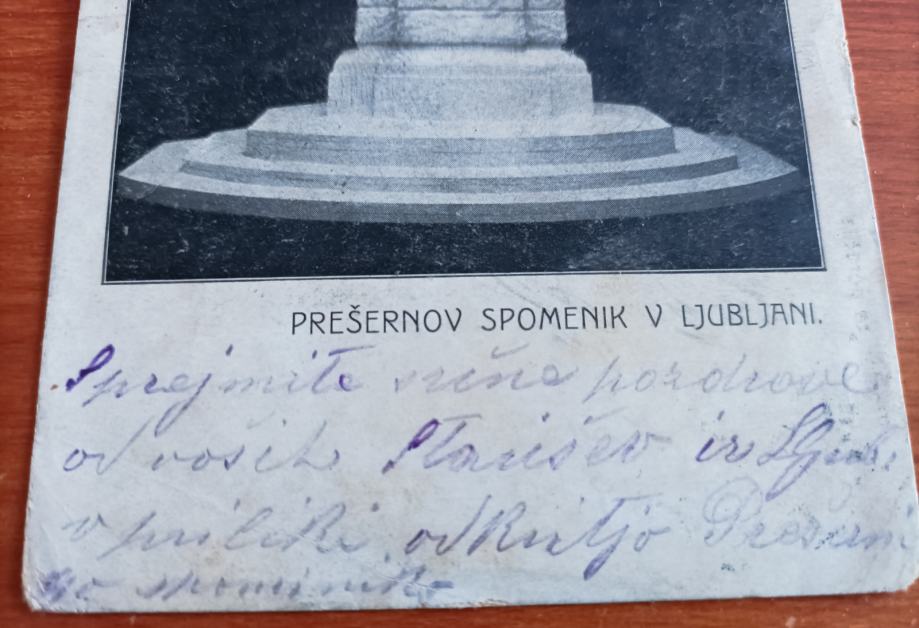 PREŠERNOV SPOMENIK V LJUBLJANI.
Sprejmite srčne pozdrave
od vaših Starišev iz Ljub.
v priliki odkritja Prešerni
go spominika